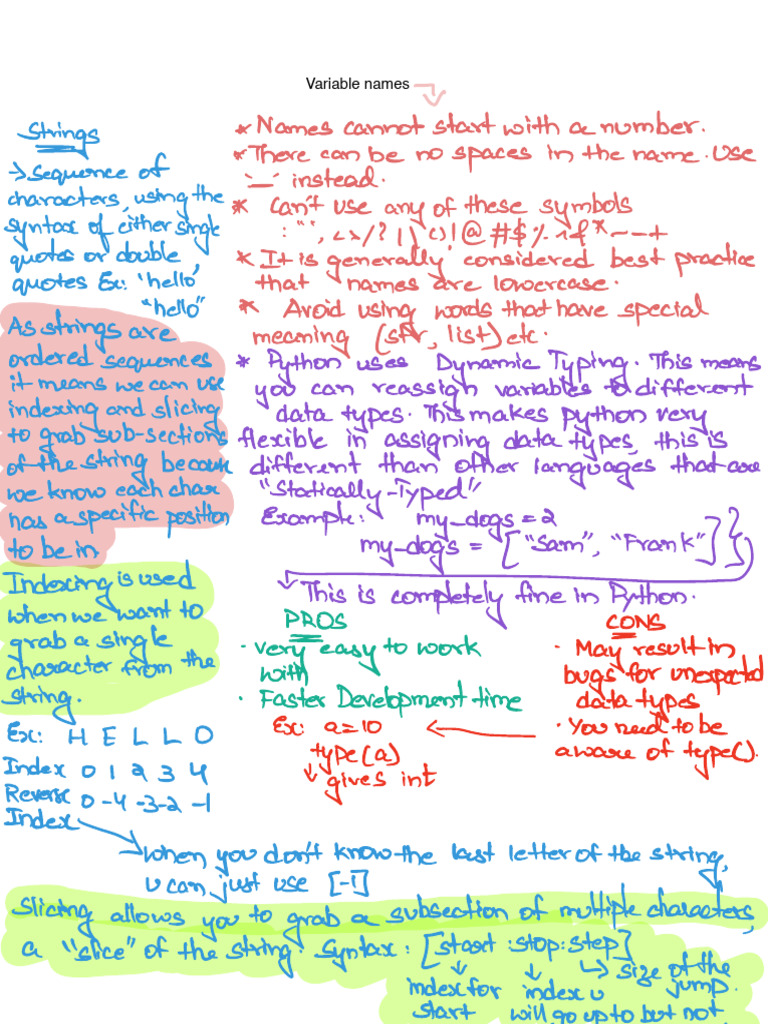 Variable names
Strings
→ Sequence of
characters, using the
syntax of either single
quotes or double
quotes Ex: 'hello'
"hello"
As strings are
ordered sequences
it means we can use
indexing and slicing
to grab sub-sections
of the string because
we know each char
has a specific position
to be in
Indexing is used
when we want to
grab a single
character from the
string.
Ex: H E L L O
Index 0 1 2 3 4
Reverse 0 -4 -3 -2 -1
Index
* Names cannot start with a number.
* There can be no spaces in the name. Use
'_' instead.
* Can't use any of these symbols
: ' " , < > / ? | \ ( ) ! @ # $ % ^ & * ~ - +
* It is generally considered best practice
that names are lowercase.
* Avoid using words that have special
meaning (str, list) etc.
* Python uses Dynamic Typing. This means
you can reassign variables to different
data types. This makes python very
flexible in assigning data types, this is
different than other languages that are
"Statically-Typed"
Example: my_dogs = 2
my_dogs = ["Sam", "Frank"] }
This is completely fine in Python.
PROS
· very easy to work
with
· Faster Development time
CONS
· May result in
bugs for unexpected
data types
· You need to be
aware of type().
Ex: a=10
type(a)
↓ gives int
→ when you don't know the last letter of the string,
u can just use [-1]
Slicing allows you to grab a subsection of multiple characters,
a "slice" of the string. Syntax: [start:stop:step]
↳ size of the
jump.
index for
start
index u
will go up to but not